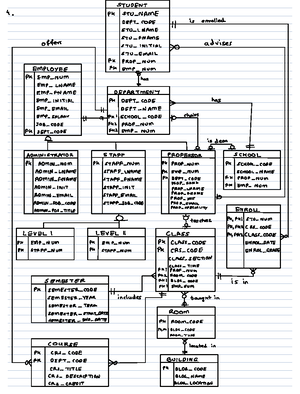 STUDENT
PK STU_NUM
DEPT_CODE
STU_LNAME
STU_FNAME
STU_INITIAL
STU_EMAIL
PROF_NUM
EMP_NUM
is enrolled
offers
advises
has
EMPLOYEE
PK EMP_NUM
EMP_LNAME
EMP_FNAME
EMP_INITIAL
EMP_EMAIL
EMP_SALARY
JOB_CODE
DEPT_CODE
DEPARTMENT
PK DEPT_CODE
DEPT_NAME
SCHOOL_CODE
PROF_NUM
EMP_NUM
has
chairs
is dean
ADMINISTRATOR
PK ADMIN_NUM
ADMIN_LNAME
ADMIN_FNAME
ADMIN_INIT
ADMIN_EMAIL
ADMIN_JOB_CODE
ADMIN_JOB_TITLE
STAFF
PK STAFF_NUM
STAFF_LNAME
STAFF_FNAME
STAFF_INIT
STAFF_EMAIL
STAFF_JOB_CODE
PROFESSOR
PK PROF_NUM
EMP_NUM
DEPT_CODE
PROF_EMAIL
SCHOOL
PK SCHOOL_CODE
SCHOOL_NAME
PROF_NUM
EMP_NUM
teaches
ENROLL
STU_NUM
CRS_CODE
CLASS_CODE
ENROLL_DATE
ENROLL_GRADE
LEVEL 1
PK EMP_NUM
STAFF_NUM
LEVEL 2
PK EMP_NUM
STAFF_NUM
CLASS
CLASS_CODE
CRS_CODE
CLASS_SECTION
CLASS_TIME
PROF_NUM
ROOM_CODE
BLDG_CODE
is in
SEMESTER
PK SEMESTER_CODE
SEMESTER_YEAR
SEMESTER_TERM
SEMESTER_START_DATE
SEMESTER_END_DATE
includes
taught in
ROOM
PK ROOM_CODE
BLDG_CODE
ROOM_TYPE
located in
COURSE
PK CRS_CODE
DEPT_CODE
CRS_TITLE
CRS_DESCRIPTION
CRS_CREDIT
BUILDING
PK BLDG_CODE
BLDG_NAME
BLDG_LOCATION